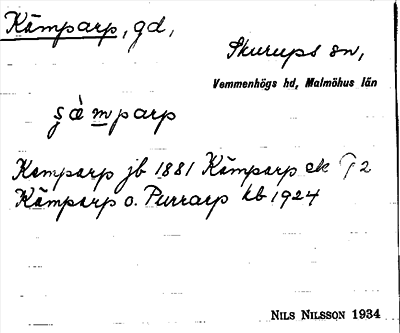 Kämparp, gd,
Skurups sn,
Vemmenhögs hd, Malmöhus län
ʂæ̀mparp
Kämparp jb 1881 Kämparp ek 72
Kämparp o. Purrarp kb 1924
NILS NILSSON 1934